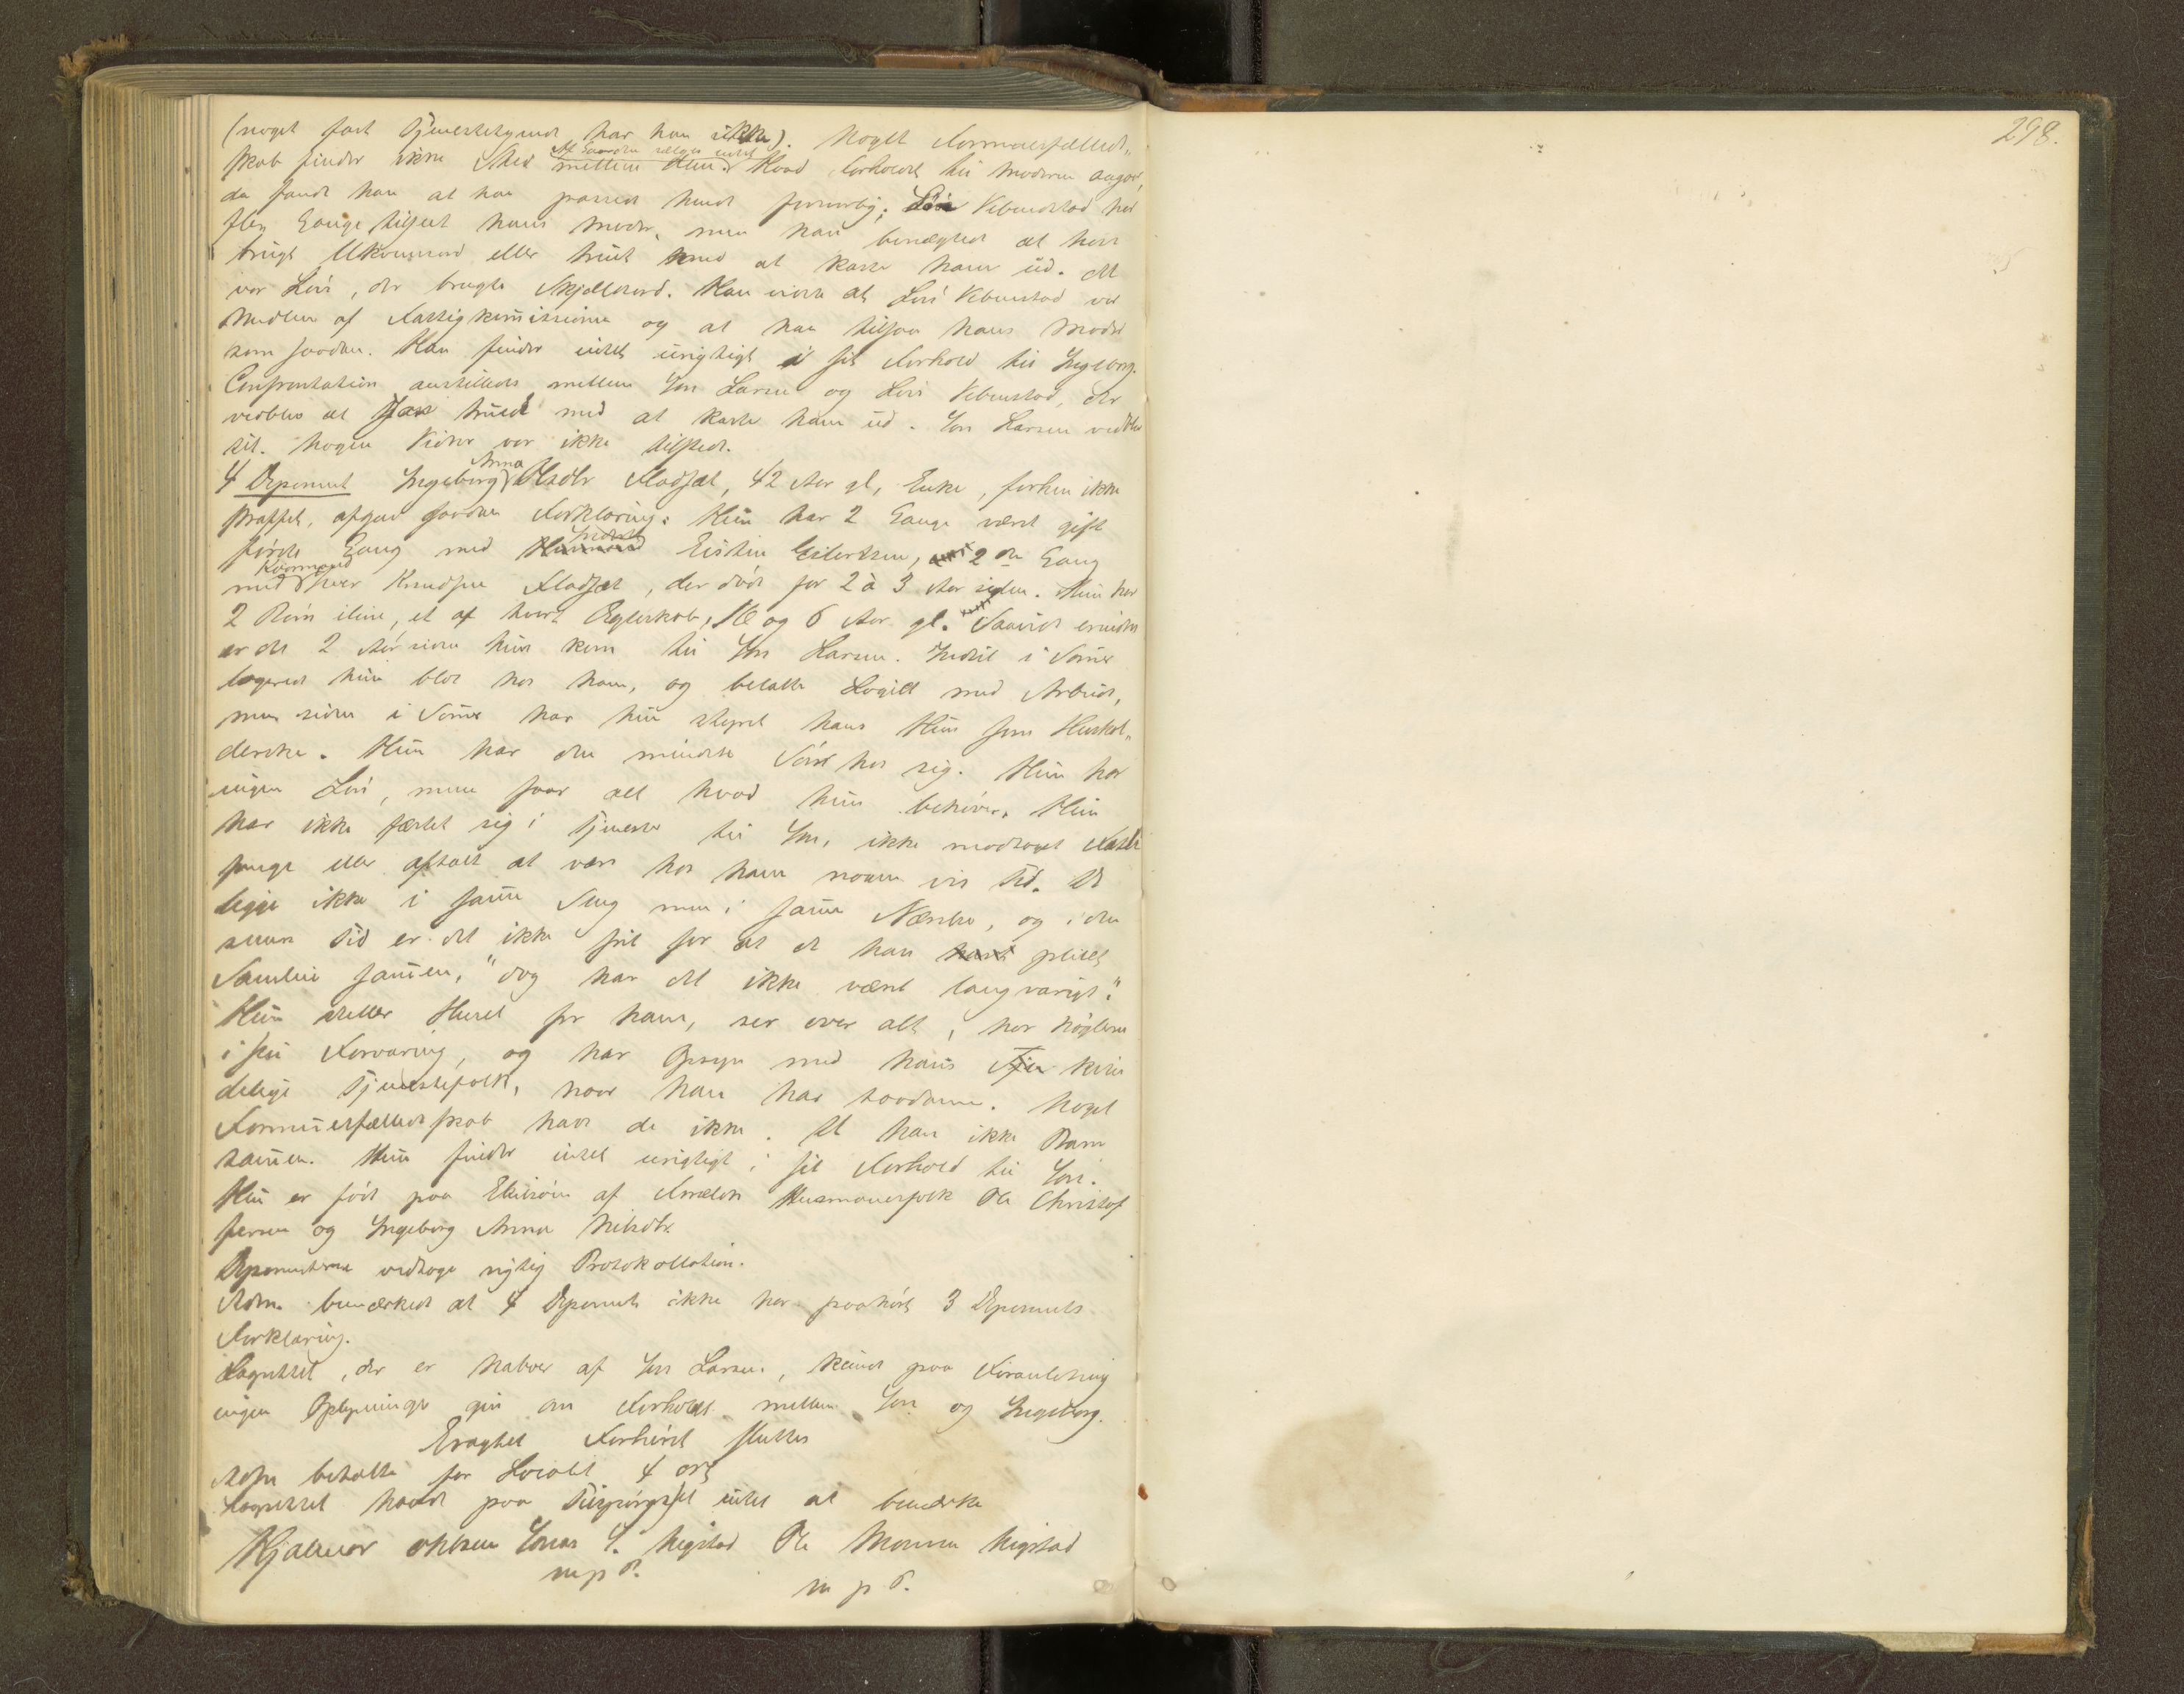 298.
(noget fast Tjenestetyende har han ikke). Noget Formuesfælled-
skab finder ikke Sted mellem dem. Af Gaarden sælges intet Hvad Forholdet til Moderen angaar,
da fandt han at han passed hende forsvarlig; Levi Vebenstad har
flere Gange tilseet hans Moder, men han benægted at have
brugt Ukvemsord eller truet med at kaste ham ud. Det
var Levi, der brugte Skjeldsord. Han vidste at Levi Vebenstad var
Medlem af Fattigkommissionen og at han tilsaa hans Moder
som saadan. Han finder intet urigtigt i sit Forhold til Ingeborg.
Confrontation anstilledes mellem Jon Larsen og Levi Vebenstad, der
vedblev at Jon truede med at kaste ham ud. Jon Larsen vedblev
sit. Nogen Vidner var ikke tilstede.
4 Deponent Ingeborg Anna Olsdtr Fladsæt, 42 Aar gl, Enke, forhen ikke
straffet, afgav saadan Forklaring: Hun har 2 Gange været gift
første Gang med Eistein Eilertsen, 2den Gang
med Iver Knudsen Fladsæt, der døde for 2 à 3 Aar siden. Hun har
2 Børn ilive, et af hvert Ægteskab, 16 og 6 Aar gl. Saavidt erindres
er det 2 Aar siden hun kom til Jon Larsen. Indtil i Sommer
logered hun blot hos ham, og betalte Logiet med Arbeide,
men siden i Sommer har hun styret hans Hus som Hushol-
derske. Hun har den mindste Søn hos sig. Hun har
ingen Løn, men faar alt hvad hun behøver. Hun
har ikke fæstet sig i Tjeneste til Jon, ikke modtaget Fæste
penge eller aftalt at være hos ham nogen vis Tid. De
ligge ikke i samme Seng men i samme Værelse, og i den
senere Tid er det ikke frit for at de have pleiet
Samleie sammen, "dog har det ikke været langvarigt".
Hun steller Huset for ham, ser over alt, har Nøglerne
i sin Forvaring, og har Opsyn med hans kvin
delige Tjenestefolk, naar han har saadanne. Noget
Formuesfælledskab have de ikke. De have ikke Barn
sammen. Hun finder intet urigtigt i sit Forhold til Jon.
Hun er født paa af Forældre Husmandsfolk Ole Christof
fersen og Ingeborg Anna Nilsdtr.
Deponenterne vedtoge rigtig Protokollation.
Adm. bemærked at 4 Deponent ikke har paahørt 3 Deponents
Forklaring.
Lagrettet, der er Naboer af Jon Larsen, kunde paa Foranledning
ingen Oplysninger give om Forholdet mellem Jon og Ingeborg.
Eragtet Forhøret sluttes
betalte for Localet 4 ort
Lagrettet havde paa Tilspørgsel intet at bemærke
Hjalmar Jonas J. Nigstad Ole Monsen Nigstad
m p P. m p P.